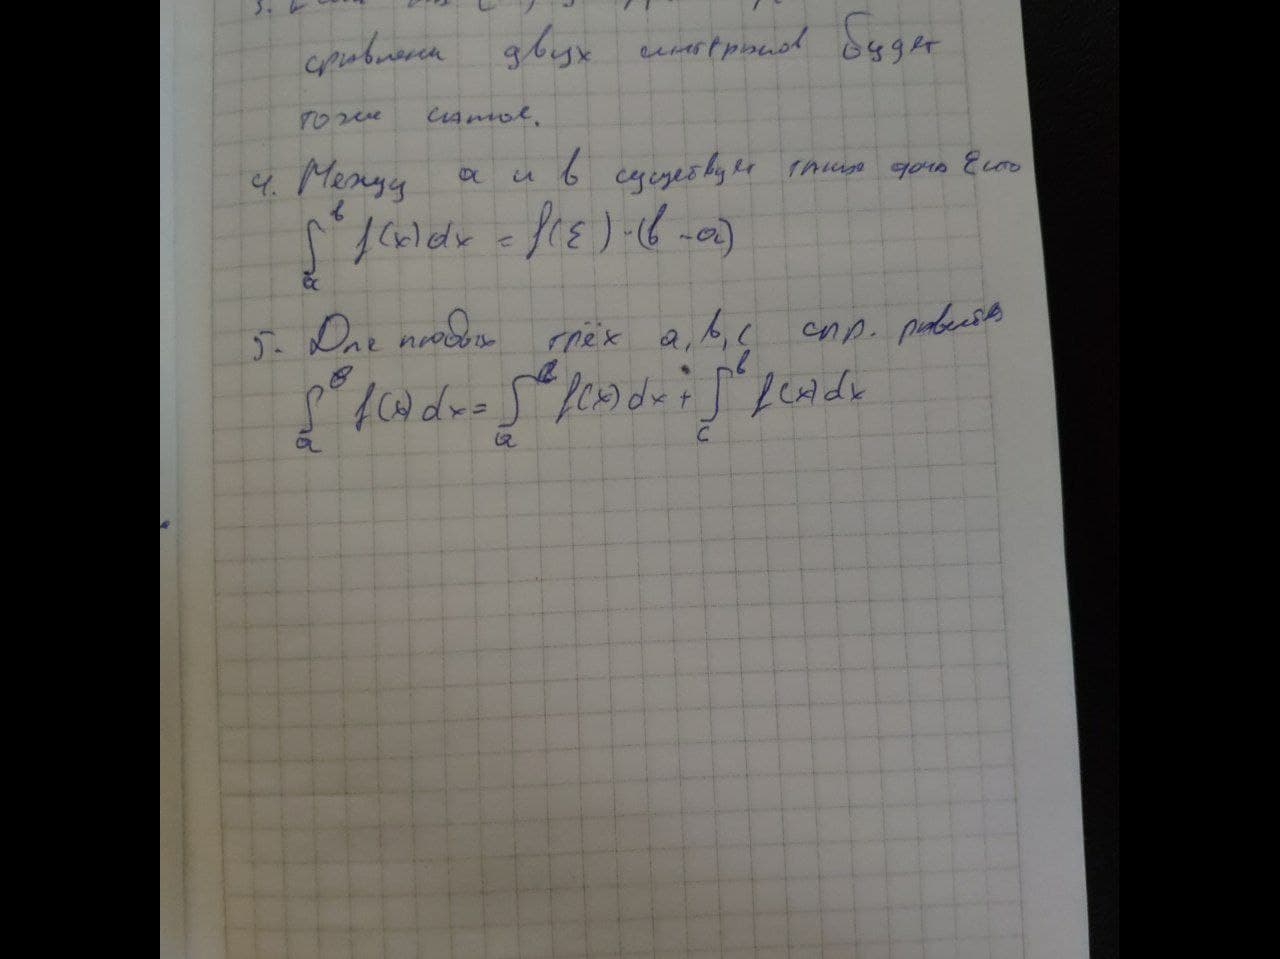 3. Если
сравнении двух интегралов будет
тоже самое.
4. Между a и b существует такая точка ξ что
∫ₐᵇ f(x)dx = f(ξ)·(b-a)
5. Для любых трёх a, b, c спр. равенство
∫ₐᵇ f(x)dx = ∫ₐᶜ f(x)dx + ∫꜀ᵇ f(x)dx